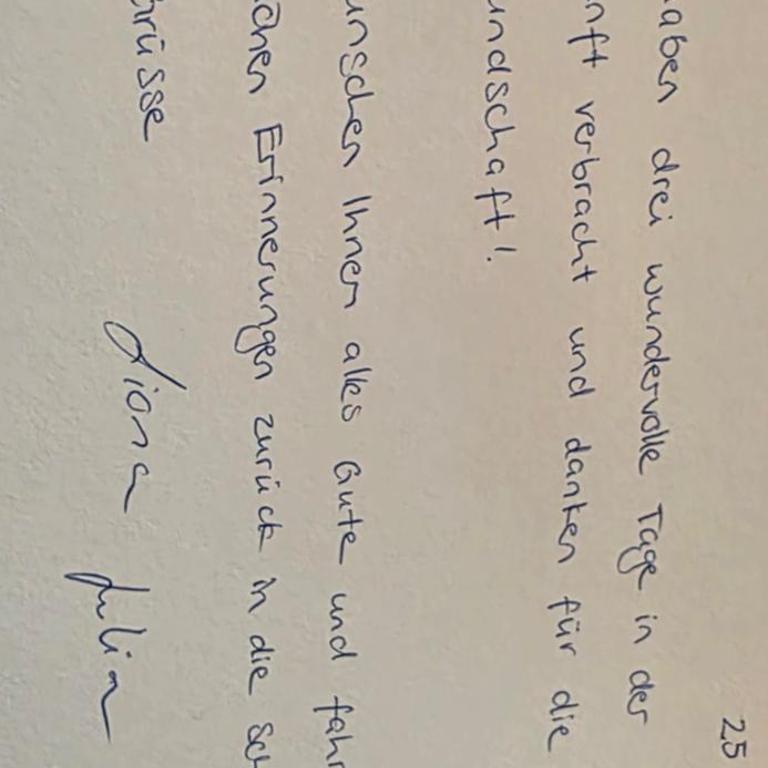 25
aben drei wundervolle Tage in der
nft verbracht und danken für die
undschaft!
unschen Ihnen alles Gute und fahr
chen Erinnerungen zurück in die Sch
rüsse
Liona Julia